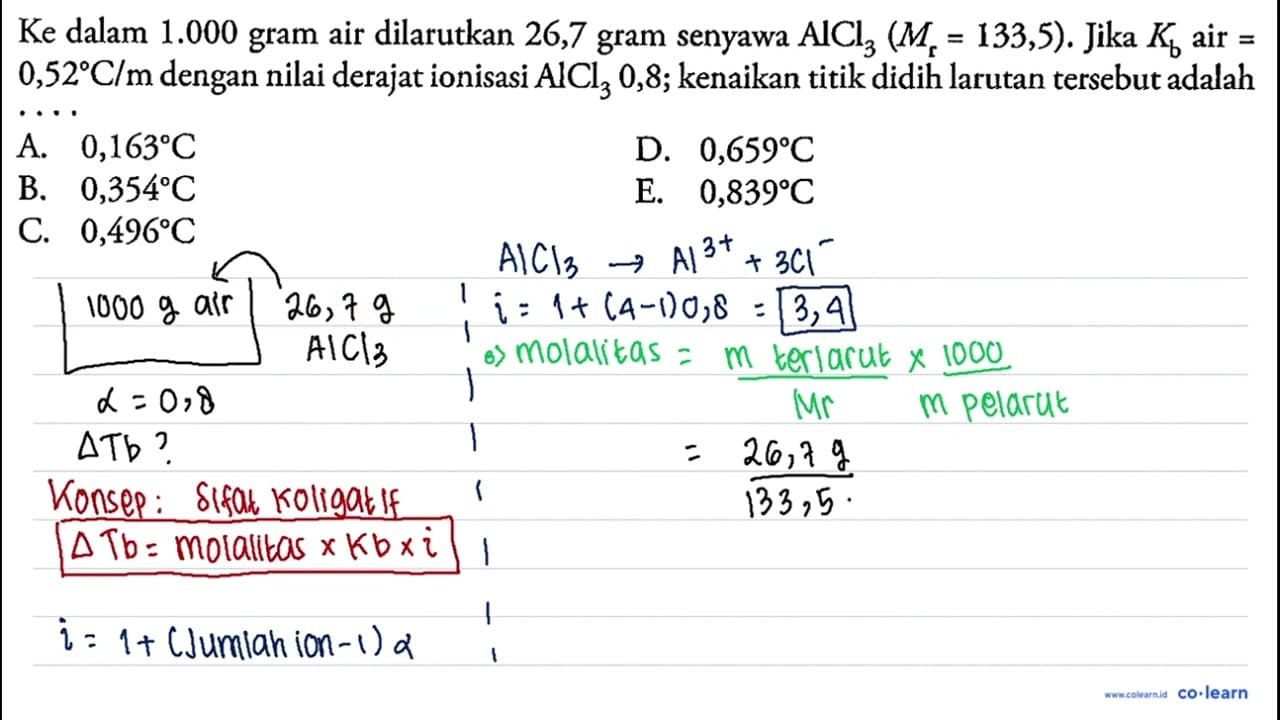 Ke dalam 1.000 gram air dilarutkan 26,7 gram senyawa AlCl₃ (Mᵣ = 133,5). Jika K_b air =
0,52°C/m dengan nilai derajat ionisasi AlCl₃ 0,8; kenaikan titik didih larutan tersebut adalah
. . . .
A. 0,163°C
B. 0,354°C
C. 0,496°C
D. 0,659°C
E. 0,839°C
1000 g air
26,7 g
AlCl3
α = 0,8
ΔTb ?
Konsep: Sifat Koligatif
ΔTb = molalitas x Kb x i
i = 1 + (Jumlah ion - 1) α
AlCl3 → Al³⁺ + 3Cl⁻
i = 1 + (4-1)0,8 = 3,4
molalitas = m terlarut x 1000
Mr m pelarut
= 26,7 g
133,5 .
www.colearn.id co•learn